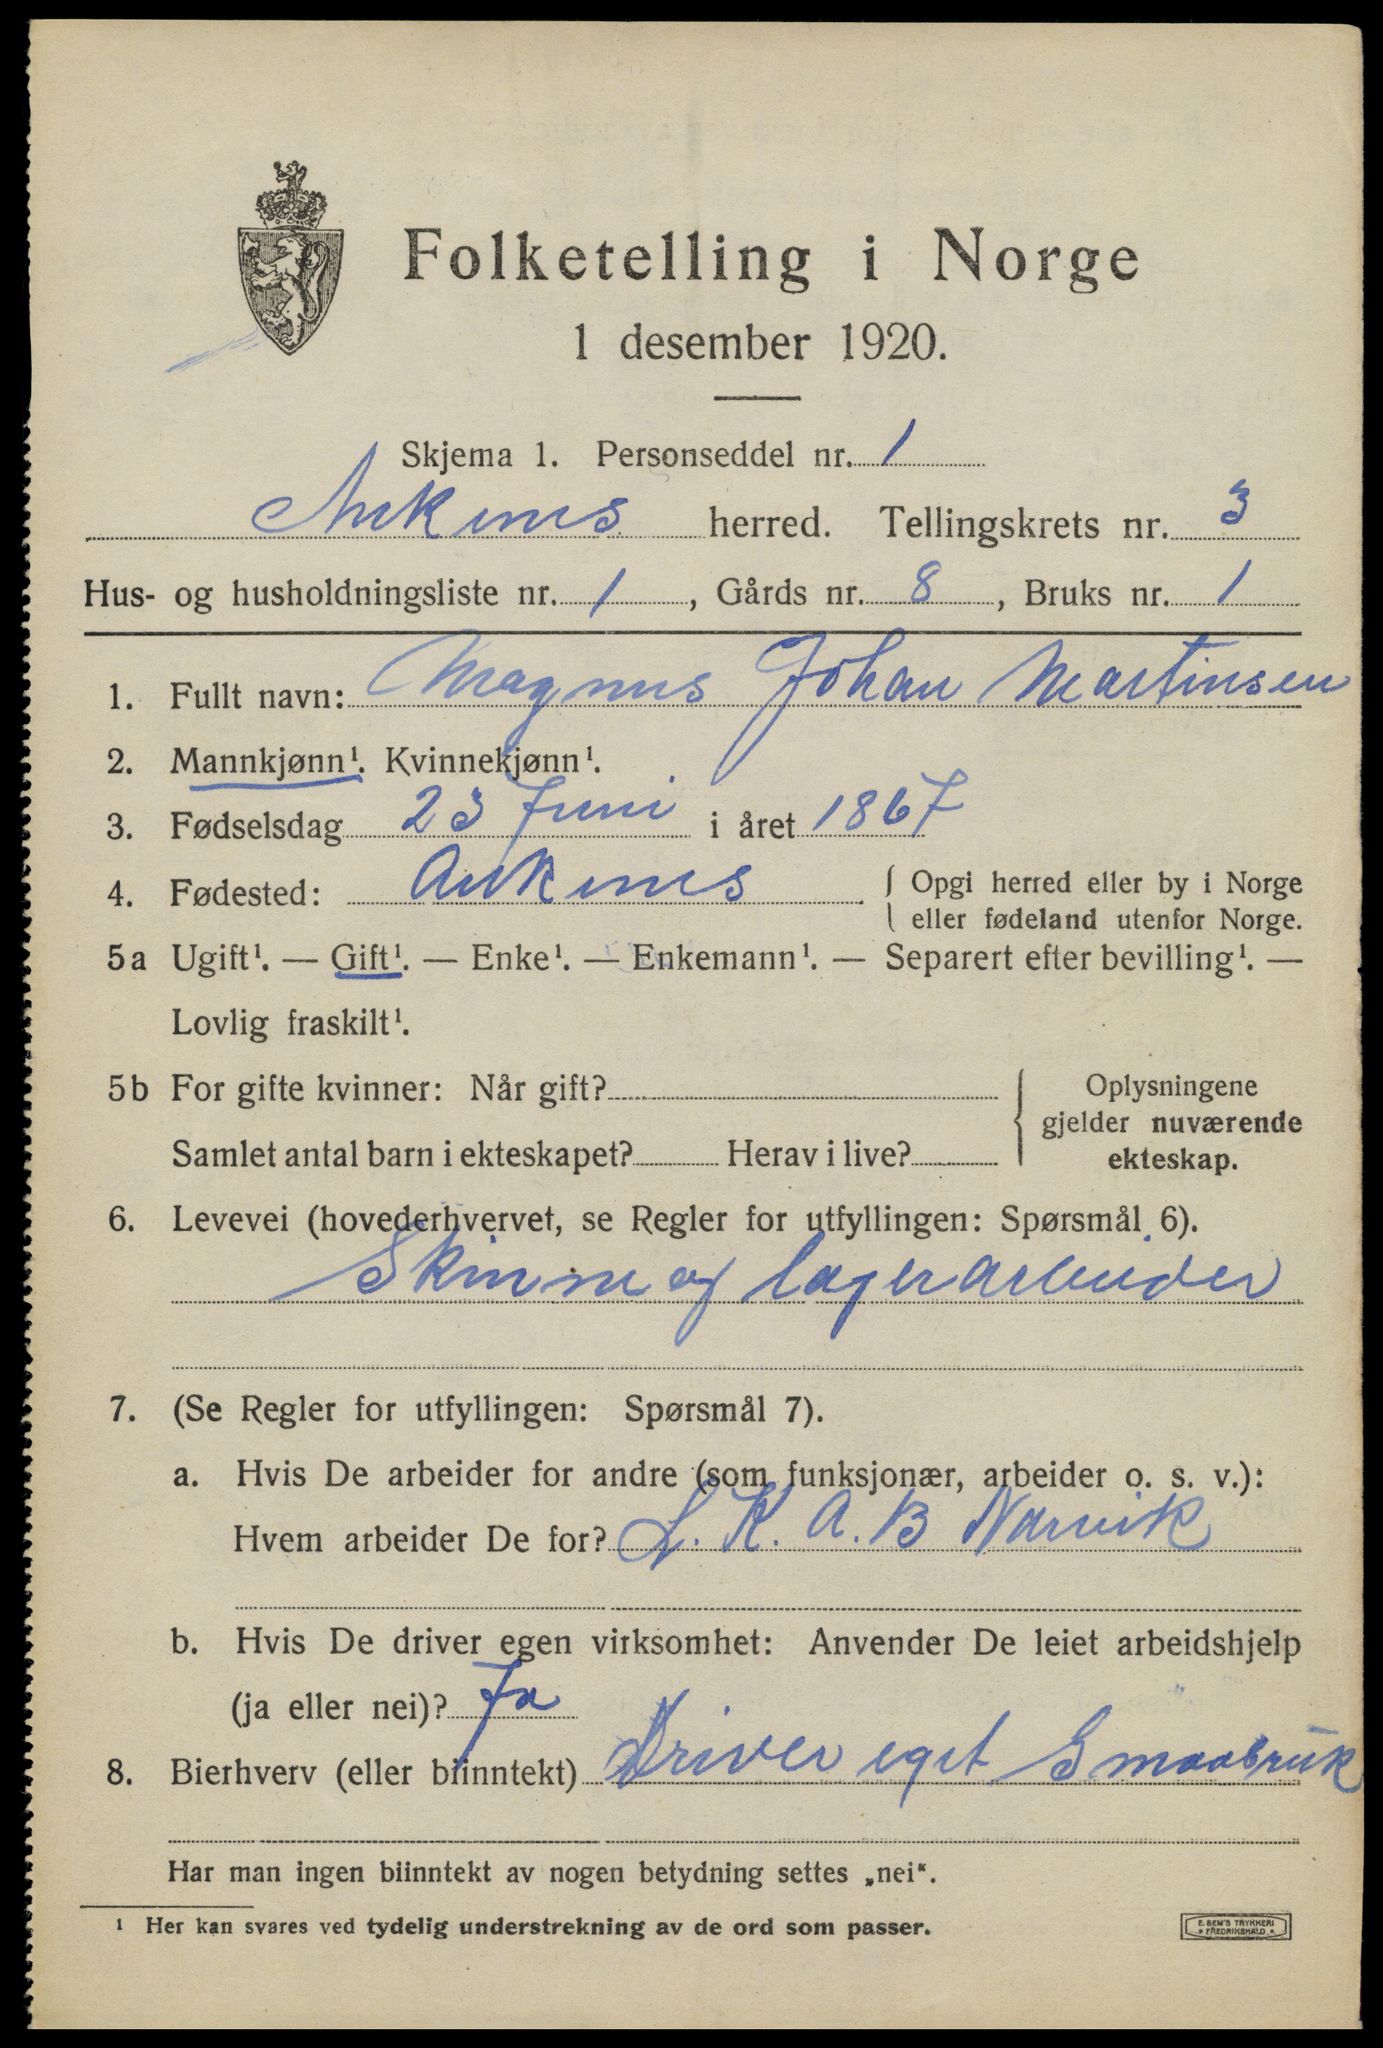 Folketelling i Norge
1 desember 1920.
Skjema 1. Personseddel nr. 1
Ankenes herred. Tellingskrets nr. 3
Hus- og husholdningsliste nr. 1, Gårds nr. 8, Bruks nr. 1
1. Fullt navn: Magnus Johan Martinsen
2. Mannkjønn¹. Kvinnekjønn¹.
3. Fødselsdag 23 Juni i året 1867
4. Fødested: Ankenes { Opgi herred eller by i Norge
eller fødeland utenfor Norge.
5a Ugift¹. — Gift¹. — Enke¹. — Enkemann¹. — Separert efter bevilling¹. —
Lovlig fraskilt¹.
5b For gifte kvinner: Når gift? { Oplysningene
gjelder nuværende
Samlet antal barn i ekteskapet? Herav i live? ekteskap.
6. Levevei (hovederhvervet, se Regler for utfyllingen: Spørsmål 6).
Skinne og lagerarbeider
7. (Se Regler for utfyllingen: Spørsmål 7).
a. Hvis De arbeider for andre (som funksjonær, arbeider o. s. v.):
Hvem arbeider De for? L. K. A. B Narvik
b. Hvis De driver egen virksomhet: Anvender De leiet arbeidshjelp
(ja eller nei)? Ja
8. Bierhverv (eller biinntekt) Driver eget Smaabruk
Har man ingen biinntekt av nogen betydning settes „nei“.
¹ Her kan svares ved tydelig understrekning av de ord som passer.
E. SEM'S TRYKKERI
* FREDRIKSHALD *